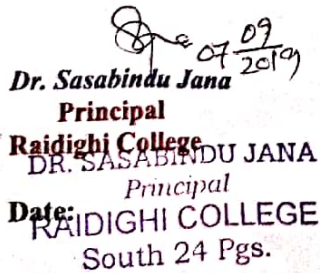 07 09
2019
Dr. Sasabindu Jana
Principal
Raidighi College
DR. SASABINDU JANA
Principal
Date:
RAIDIGHI COLLEGE
South 24 Pgs.